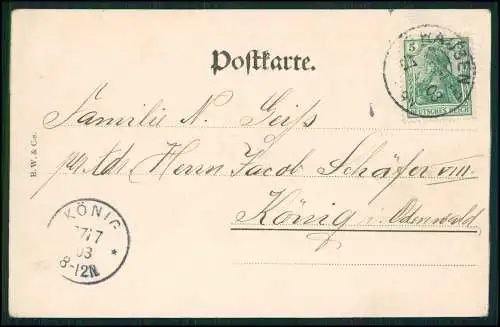 5
DEUTSCHES REICH
HAUSEN
03
Postkarte.
Familie N. Geiß
Herrn Jacob Schäfer VIII.
König i. Odenwald
B. W. & Co.
KÖNIG
17/7
03
8-12N
*